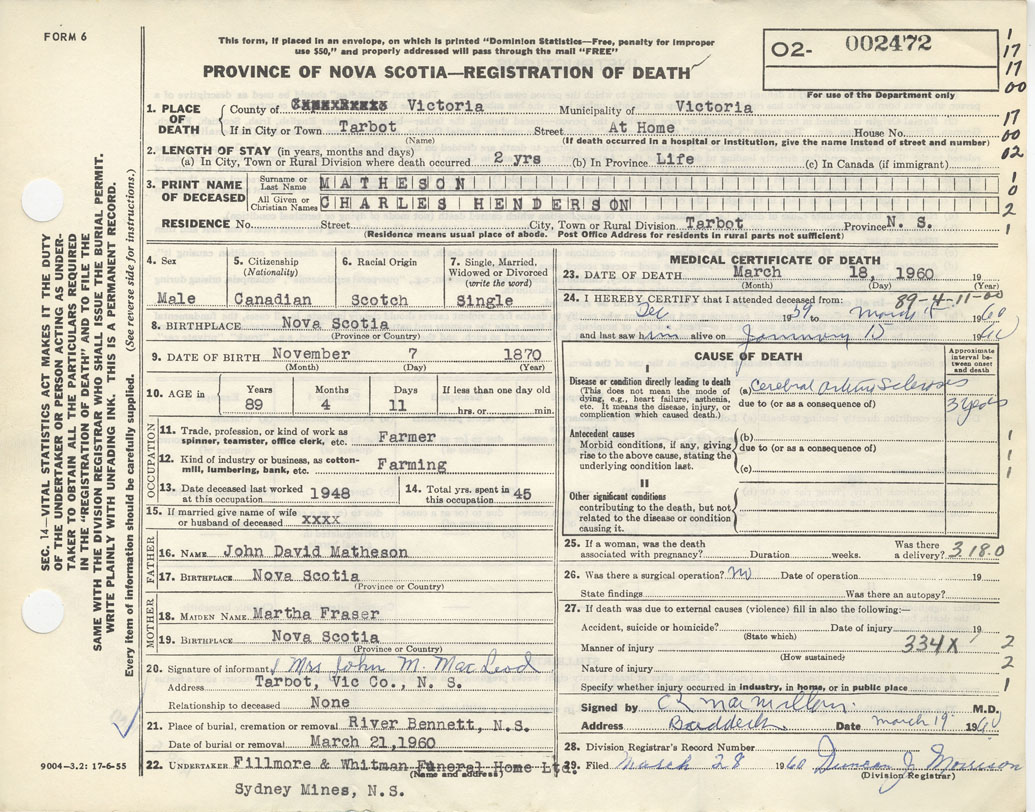 FORM 6
This form, if placed in an envelope, on which is printed "Dominion Statistics—Free, penalty for improper
use $50," and properly addressed will pass through the mail "FREE"
PROVINCE OF NOVA SCOTIA—REGISTRATION OF DEATH
O2- 002472
For use of the Department only
1
17
17
00
17
00
02
1
0
2
1
1. PLACE OF DEATH
County of Victoria Municipality of Victoria
If in City or Town Tarbot Street At Home House No.
(Name) (If death occurred in a hospital or institution, give the name instead of street and number)
2. LENGTH OF STAY (in years, months and days)
(a) In City, Town or Rural Division where death occurred 2 yrs (b) In Province Life (c) In Canada (if immigrant)
3. PRINT NAME OF DECEASED
Surname or Last Name MATHESON
All Given or Christian Names CHARLES HENDERSON
RESIDENCE No. Street City, Town or Rural Division Tarbot Province N. S.
(Residence means usual place of abode. Post Office Address for residents in rural parts not sufficient)
4. Sex
Male
5. Citizenship
(Nationality)
Canadian
6. Racial Origin
Scotch
7. Single, Married,
Widowed or Divorced
(write the word)
Single
8. BIRTHPLACE Nova Scotia
(Province or Country)
9. DATE OF BIRTH November 7 1870
(Month) (Day) (Year)
10. AGE in
Years Months Days If less than one day old
89 4 11 hrs. or min.
OCCUPATION
11. Trade, profession, or kind of work as
spinner, teamster, office clerk, etc. Farmer
12. Kind of industry or business, as cotton-
mill, lumbering, bank, etc. Farming
13. Date deceased last worked
at this occupation 1948
14. Total yrs. spent in
this occupation 45
15. If married give name of wife
or husband of deceased xxxx
FATHER
16. NAME John David Matheson
17. BIRTHPLACE Nova Scotia
(Province or Country)
MOTHER
18. MAIDEN NAME Martha Fraser
19. BIRTHPLACE Nova Scotia
(Province or Country)
20. Signature of informant Mrs John M. MacLeod
Address Tarbot, Vic Co., N. S.
Relationship to deceased None
21. Place of burial, cremation or removal River Bennett, N.S.
Date of burial or removal March 21,1960
22. UNDERTAKER Fillmore & Whitman Funeral Home Ltd.
(Name and address)
Sydney Mines, N.S.
MEDICAL CERTIFICATE OF DEATH
23. DATE OF DEATH March 18, 1960 19
(Month) (Day) (Year)
89-4-11-00
24. I HEREBY CERTIFY that I attended deceased from:
Dec 1959 to March 1960
and last saw him alive on January 1960
CAUSE OF DEATH
Approximate
interval be-
tween onset
and death
I
Disease or condition directly leading to death
(This does not mean the mode of
dying, e.g., heart failure, asthenia,
etc. It means the disease, injury, or
complication which caused death.)
(a) Cerebral arteriosclerosis
due to (or as a consequence of) 3 years
Antecedent causes
Morbid conditions, if any, giving
rise to the above cause, stating the
underlying condition last.
(b)
due to (or as a consequence of)
(c)
1
1
1
II
Other significant conditions
contributing to the death, but not
related to the disease or condition
causing it.
25. If a woman, was the death
associated with pregnancy? Duration weeks. Was there
a delivery? 3180
26. Was there a surgical operation? no Date of operation 19
State findings Was there an autopsy?
27. If death was due to external causes (violence) fill in also the following:—
Accident, suicide or homicide? Date of injury 19
(State which)
Manner of injury 334X 2
(How sustained)
Nature of injury 2
Specify whether injury occurred in industry, in home, or in public place 1
Signed by C L MacMillan M.D.
Address Baddeck Date March 19 1960
28. Division Registrar's Record Number
29. Filed March 28 1960 Duncan J. Morrison
(Division Registrar)
SEC. 14—VITAL STATISTICS ACT MAKES IT THE DUTY
OF THE UNDERTAKER OR PERSON ACTING AS UNDER-
TAKER TO OBTAIN ALL THE PARTICULARS REQUIRED
IN THE "REGISTRATION OF DEATH" AND TO FILE THE
SAME WITH THE DIVISION REGISTRAR WHO SHALL ISSUE THE BURIAL PERMIT.
WRITE PLAINLY WITH UNFADING INK. THIS IS A PERMANENT RECORD.
Every item of information should be carefully supplied. (See reverse side for instructions.)
9004-3.2: 17-6-55